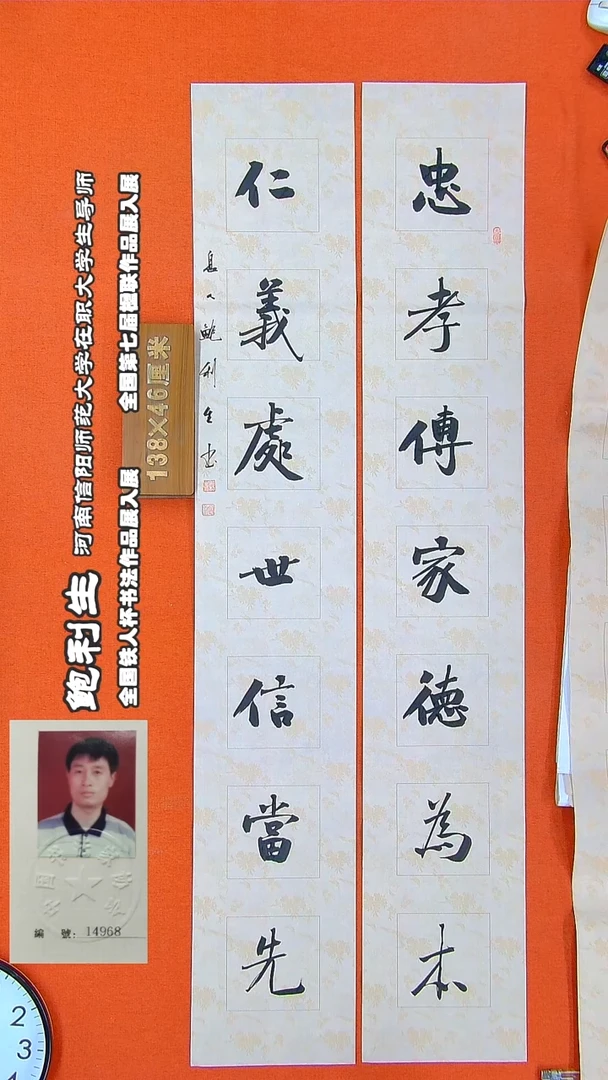 忠孝傳家德為本
仁義處世信當先
息人鲍利生书
138×46厘米
鲍利生 河南信阳师范大学在职大学生导师
全国铁人杯书法作品展入展 全国第七届楹联作品展入展
編 號: 14968
2
3
4